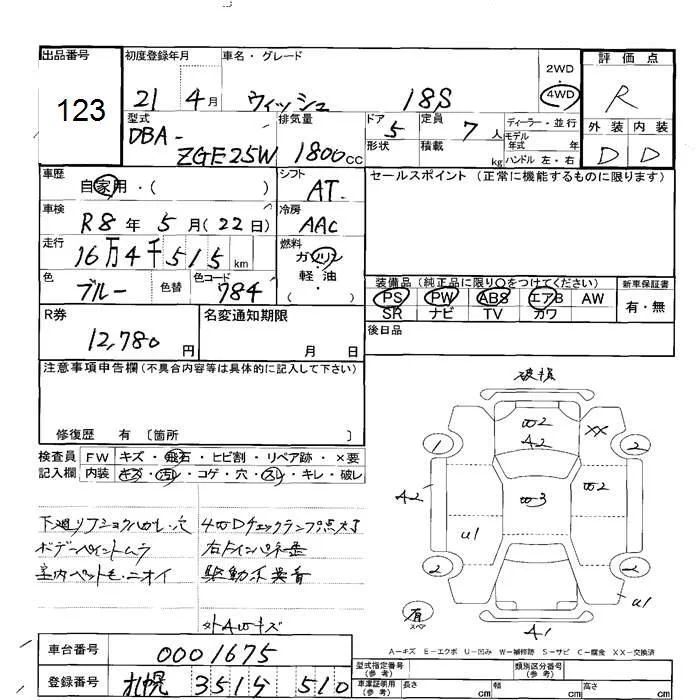 出品番号 初度登録年月 車名・グレード 2WD ・ 4WD 評価点
123 21 4月 ウィッシュ 18S R
型式 排気量 ドア 5 定員 7人 ディーラー・並行 外装 内装
DBA- ZGE25W 1800cc 形状 積載 kg モデル年式 年 D D
ハンドル 左・右
車歴 シフト セールスポイント（正常に機能するものに限ります）
自家用・（ ） AT
車検 冷房
R8年5月（22日） AAC
走行 燃料
16万4千515km ガソリン
色 色替 色コード 軽油
ブルー 784 （・）
装備品（純正品に限り○をつけてください） 新車保証書
PS PW ABS エアB AW 有・無
SR ナビ TV カワ
R券 名変通知期限 後日品
12,780円 月 日
注意事項申告欄（不具合内容等は具体的に記入して下さい）
修復歴 有 〔箇所 〕
検査員 FW キズ・飛石・ヒビ割・リペア跡・×要
記入欄 内装 キズ・汚れ・コゲ・穴・スレ・キレ・破レ
破損
W2 XX
A2
1 2
A2 W3 W2
U1
2 2
U1
有 スペア
A1
下廻リフショクハガレ・穴 4WDチェックランプ点灯
ボデーペイントムラ 右Fインパネ歪
室内ペットモ・ニオイ 駆動系異音
外AWキズ
A－キズ E－エクボ U－凹み W－補修跡 S－サビ C－腐食 XX－交換済
車台番号 0001675 型式指定番号（参考） 類別区分番号（参考）
登録番号 札幌 351 510 車庫証明用（参考） 長さ cm 幅 cm 高さ cm